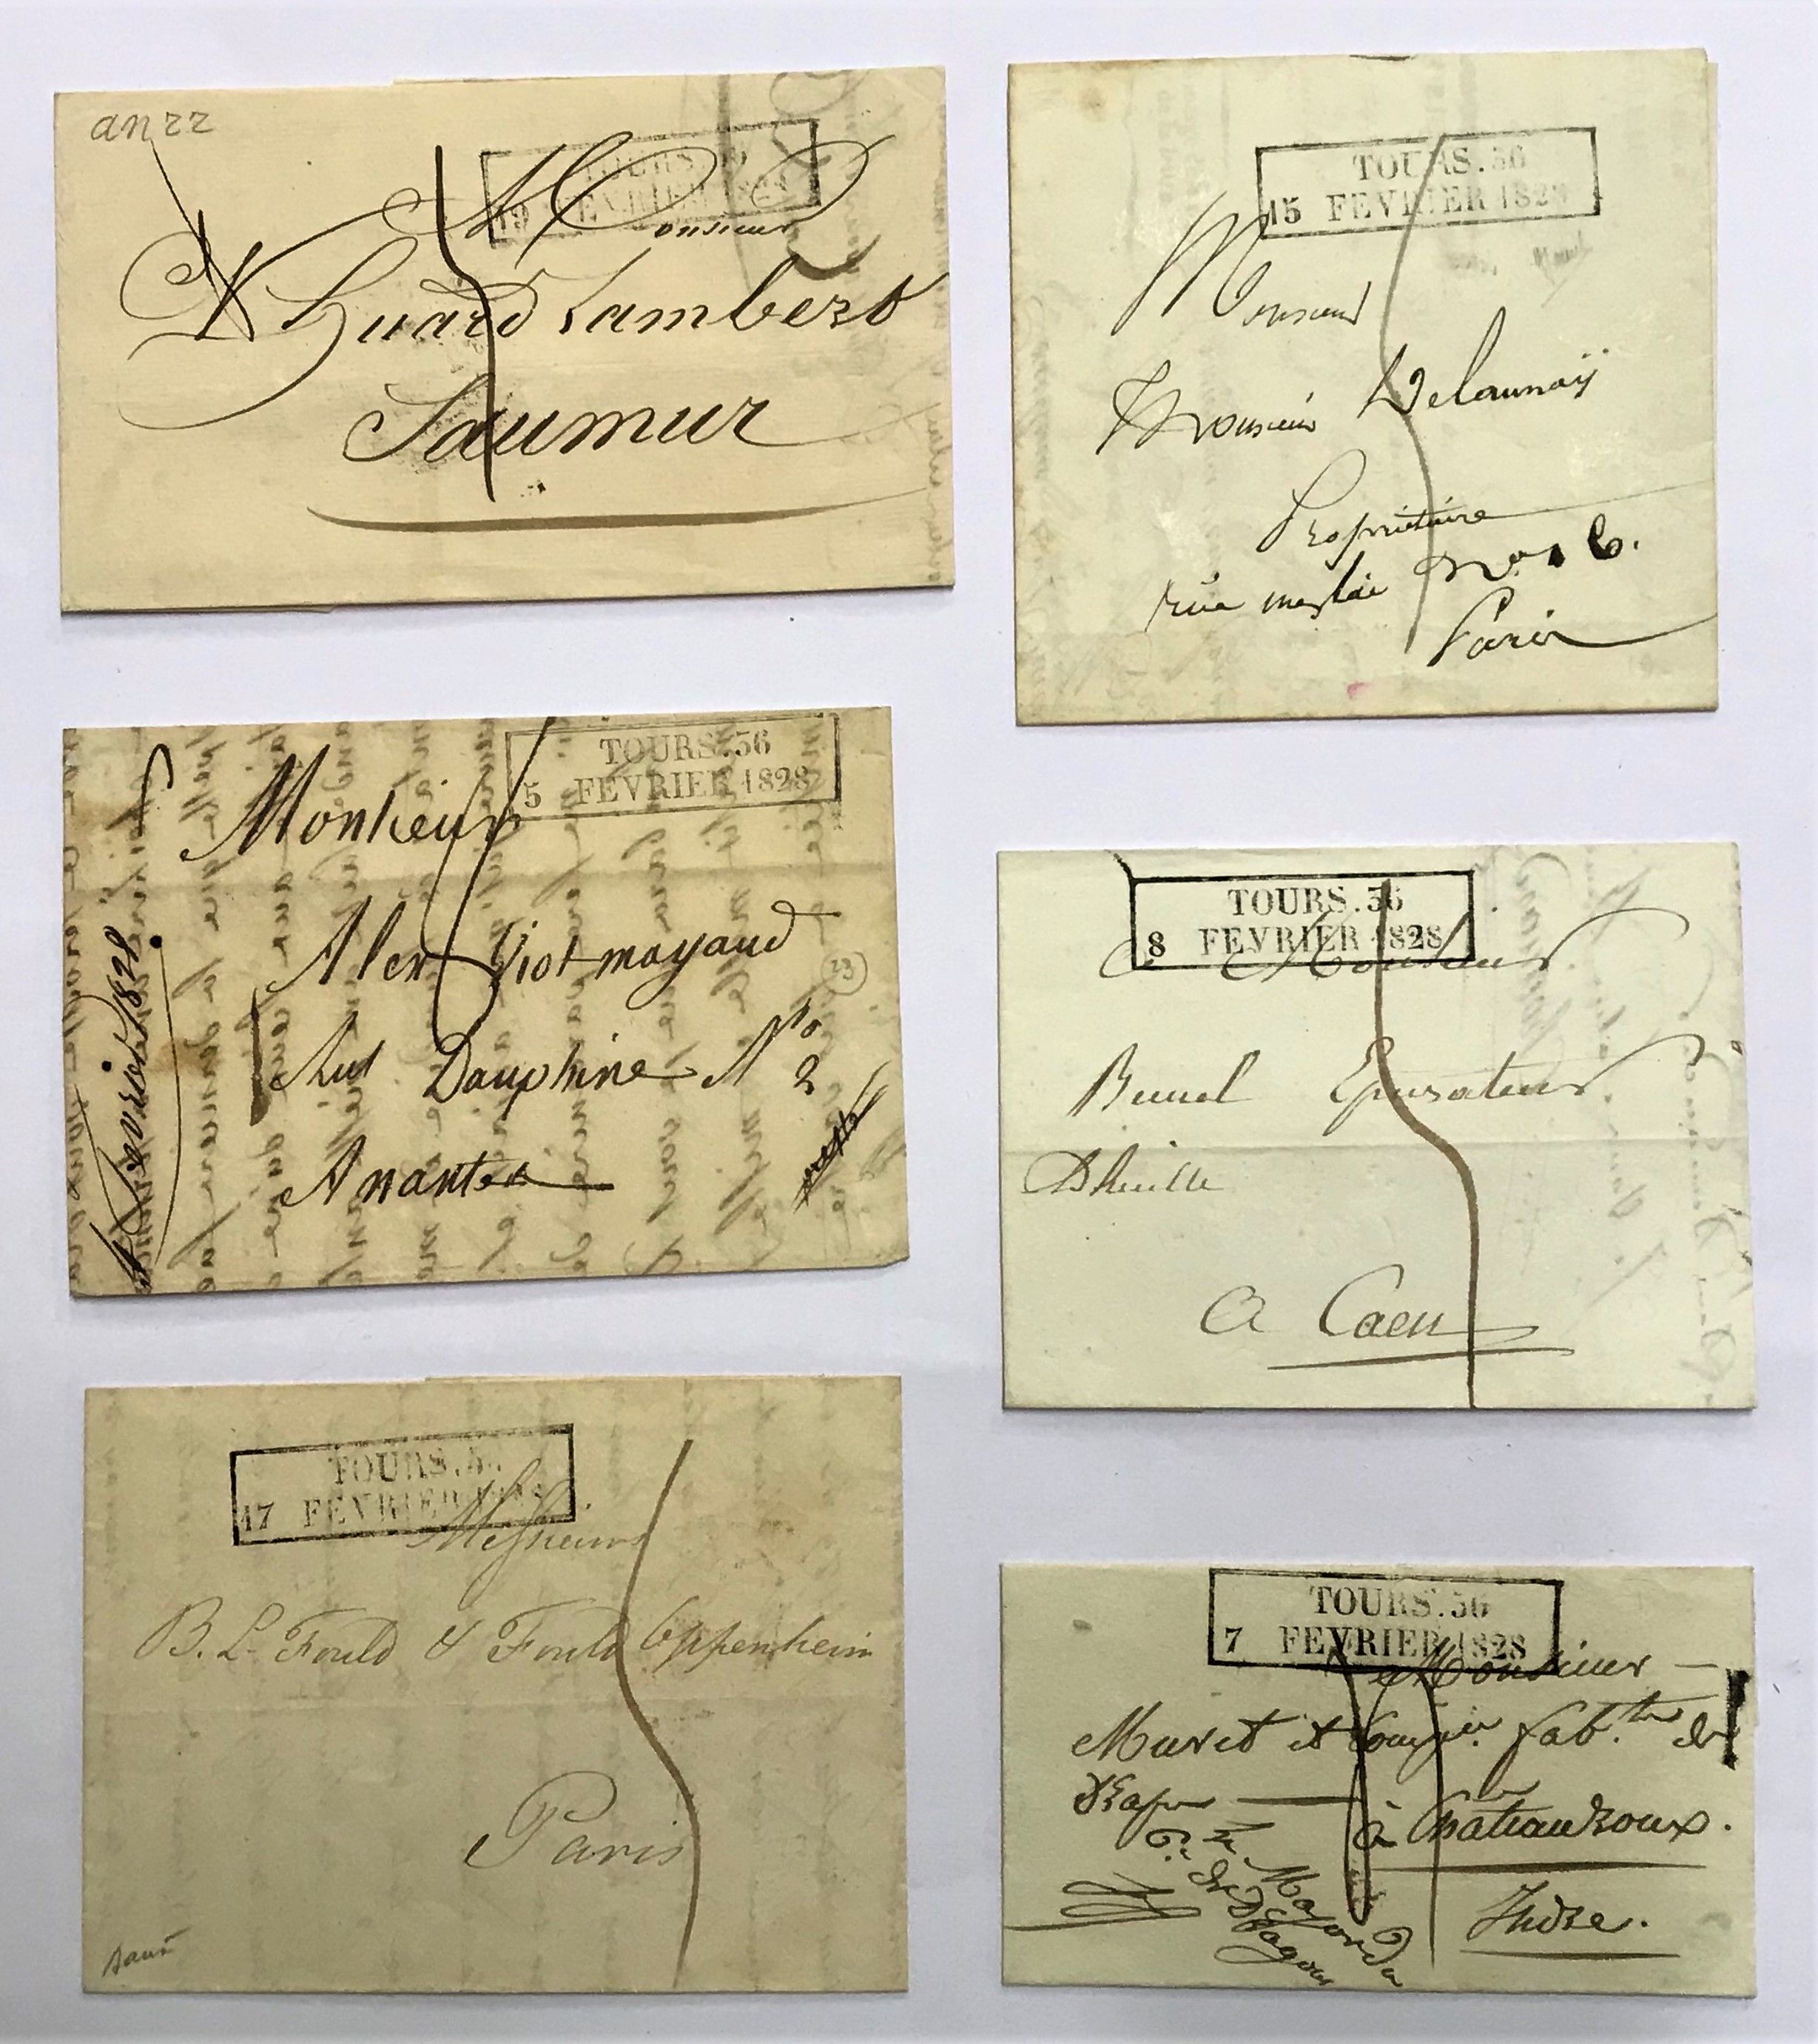 an 22
TOURS. 36
19 FEVRIER 1828
Monsieur
Huard Lambert
Saumur
TOURS. 36
15 FEVRIER 1828
Monsieur
Monsieur Delaunaÿ
Propriétaire
rue meslée No 16.
Paris
TOURS. 36
5 FEVRIER 1828
Monsieur
Alex Viot mayaud
Rue Dauphine No 2
A nantes
fevrier 1828
23
TOURS. 36
8 FEVRIER 1828
a Monsieur
Bunel Epurateur
Dhuille
a Caen
TOURS. 36
17 FEVRIER 1828
Messieurs
B. L. Fould & Fould Oppenheim
Paris
TOURS. 36
7 FEVRIER 1828
a Monsieur
Muret et Compie. fabts. de
Draps
à Chateauroux.
Indre.
Le Major du
6e. de Dragons